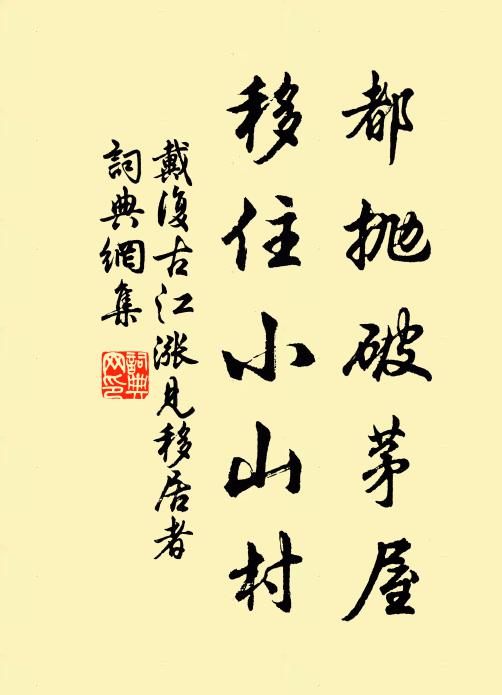 都拋破茅屋
移住小山村
戴復古江漲見移居者
詞典網集
詞典網印